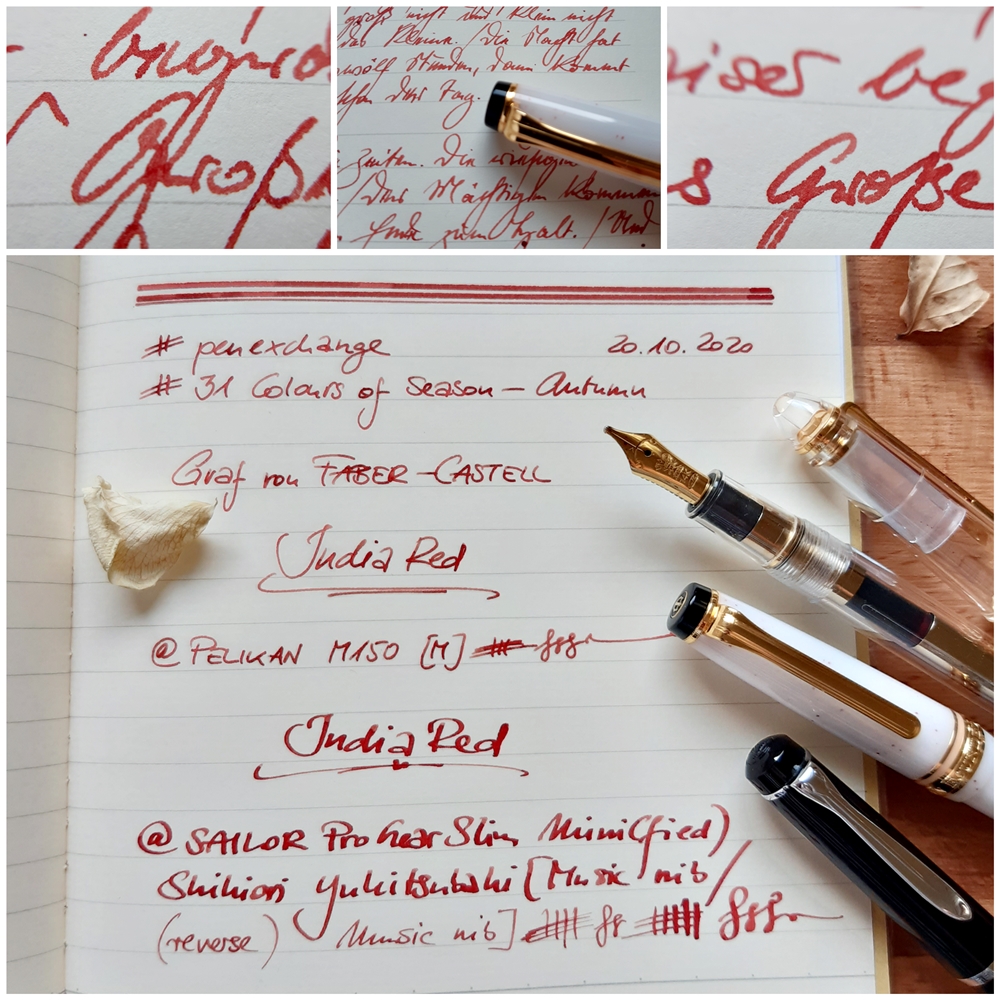 Große
groß nicht und klein nicht
das Kleine. / Die Nacht hat
zwölf Stunden, dann kommt
schon der Tag.
Zeiten. Die
/ Der Mächtigen kommen
Ende zum Halt. / Und
s Große
# penexchange 20.10.2020
# 31 Colours of Season – Autumn
Graf von FABER-CASTELL
India Red
@ PELIKAN M150 [M]
India Red
@ SAILOR Pro Gear Slim Mini(fied)
Shikiori Yukitsubaki [Music nib /
(reverse) Music nib]